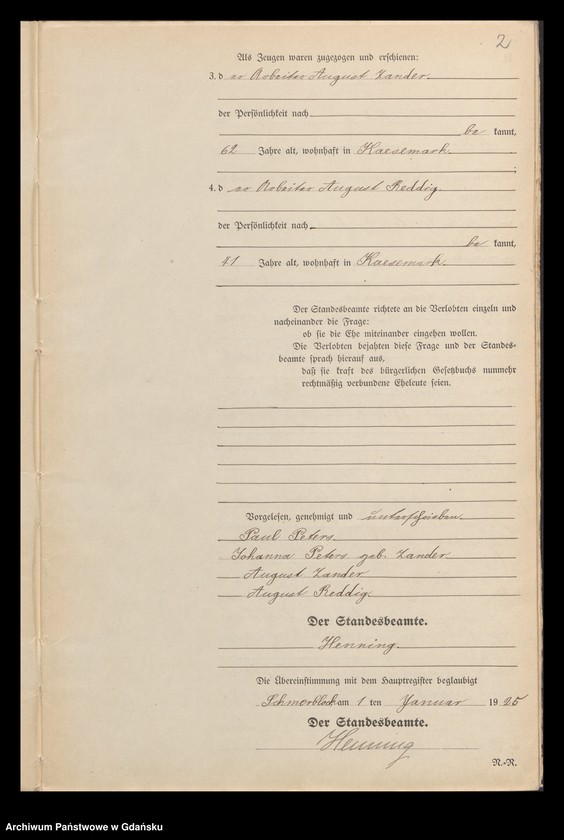 2
Als Zeugen waren zugezogen und erschienen:
3. der Arbeiter August Zander.
der Persönlichkeit nach
be kannt,
62 Jahre alt, wohnhaft in Kaesemark.
;
4. der Arbeiter August Reddig.
der Persönlichkeit nach
be kannt,
41 Jahre alt, wohnhaft in Kaesemark.
Der Standesbeamte richtete an die Verlobten einzeln und
nacheinander die Frage:
ob sie die Ehe miteinander eingehen wollen.
Die Verlobten bejahten diese Frage und der Standes-
beamte sprach hierauf aus,
daß sie kraft des bürgerlichen Gesetzbuchs nunmehr
rechtmäßig verbundene Eheleute seien.
Vorgelesen, genehmigt und unterschrieben.
Paul Peters.
Johanna Peters geb. Zander
August Zander
August Reddig.
Der Standesbeamte.
Henning.
Die Übereinstimmung mit dem Hauptregister beglaubigt
Schmerblock am 1 ten Januar 1925
Der Standesbeamte.
Henning
N.-R.
Archiwum Państwowe w Gdańsku